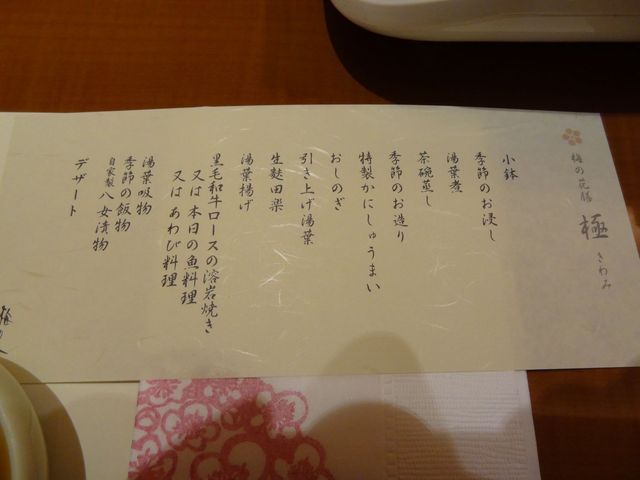 梅の花膳
極
きわみ
小鉢
季節のお浸し
湯葉煮
茶碗蒸し
季節のお造り
特製かにしゅうまい
おしのぎ
引き上げ湯葉
生麩田楽
湯葉揚げ
黒毛和牛ロースの溶岩焼き
又は 本日の魚料理
又は あわび料理
湯葉吸物
季節の飯物
自家製 八女漬物
デザート